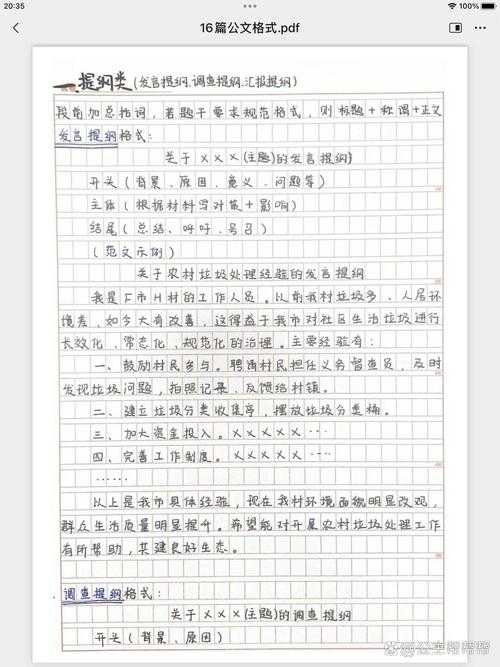 20:35
16篇公文格式.pdf
一、提纲类(发言提纲、调查提纲、汇报提纲)
段前加总括词,若题干要求规范格式,则标题+称谓+正文
发言提纲格式:
关于×××(主题)的发言提纲
开头(背景、原因、意义、问题等)
主体(根据材料写对策+影响)
结尾(总结、呼吁、号召)
(范文示例)
关于农村垃圾处理经验的发言提纲
我是F市H村的工作人员。以前我村垃圾多、人居环
境差,如今大有改善,这得益于我市对社区生活垃圾进行
长效化、常态化、规范化的治理。主要经验有:
一、鼓励村民参与。聘请村民担任义务督查员,及时
发现垃圾问题,拍照记录、反馈给村镇。
二、建立垃圾分类收集亭,摆放垃圾分类桶。
三、加大资金投入。×××××……
四、完善工作制度。×××××……
……
以上是我市具体经验,现在我村环境面貌明显改观,
群众生活质量明显提升。希望能对开展农村垃圾处理工作
有所帮助,共建良好生态。
调查提纲格式:
关于×××(主题)的调查提纲
开头(背景、原因)